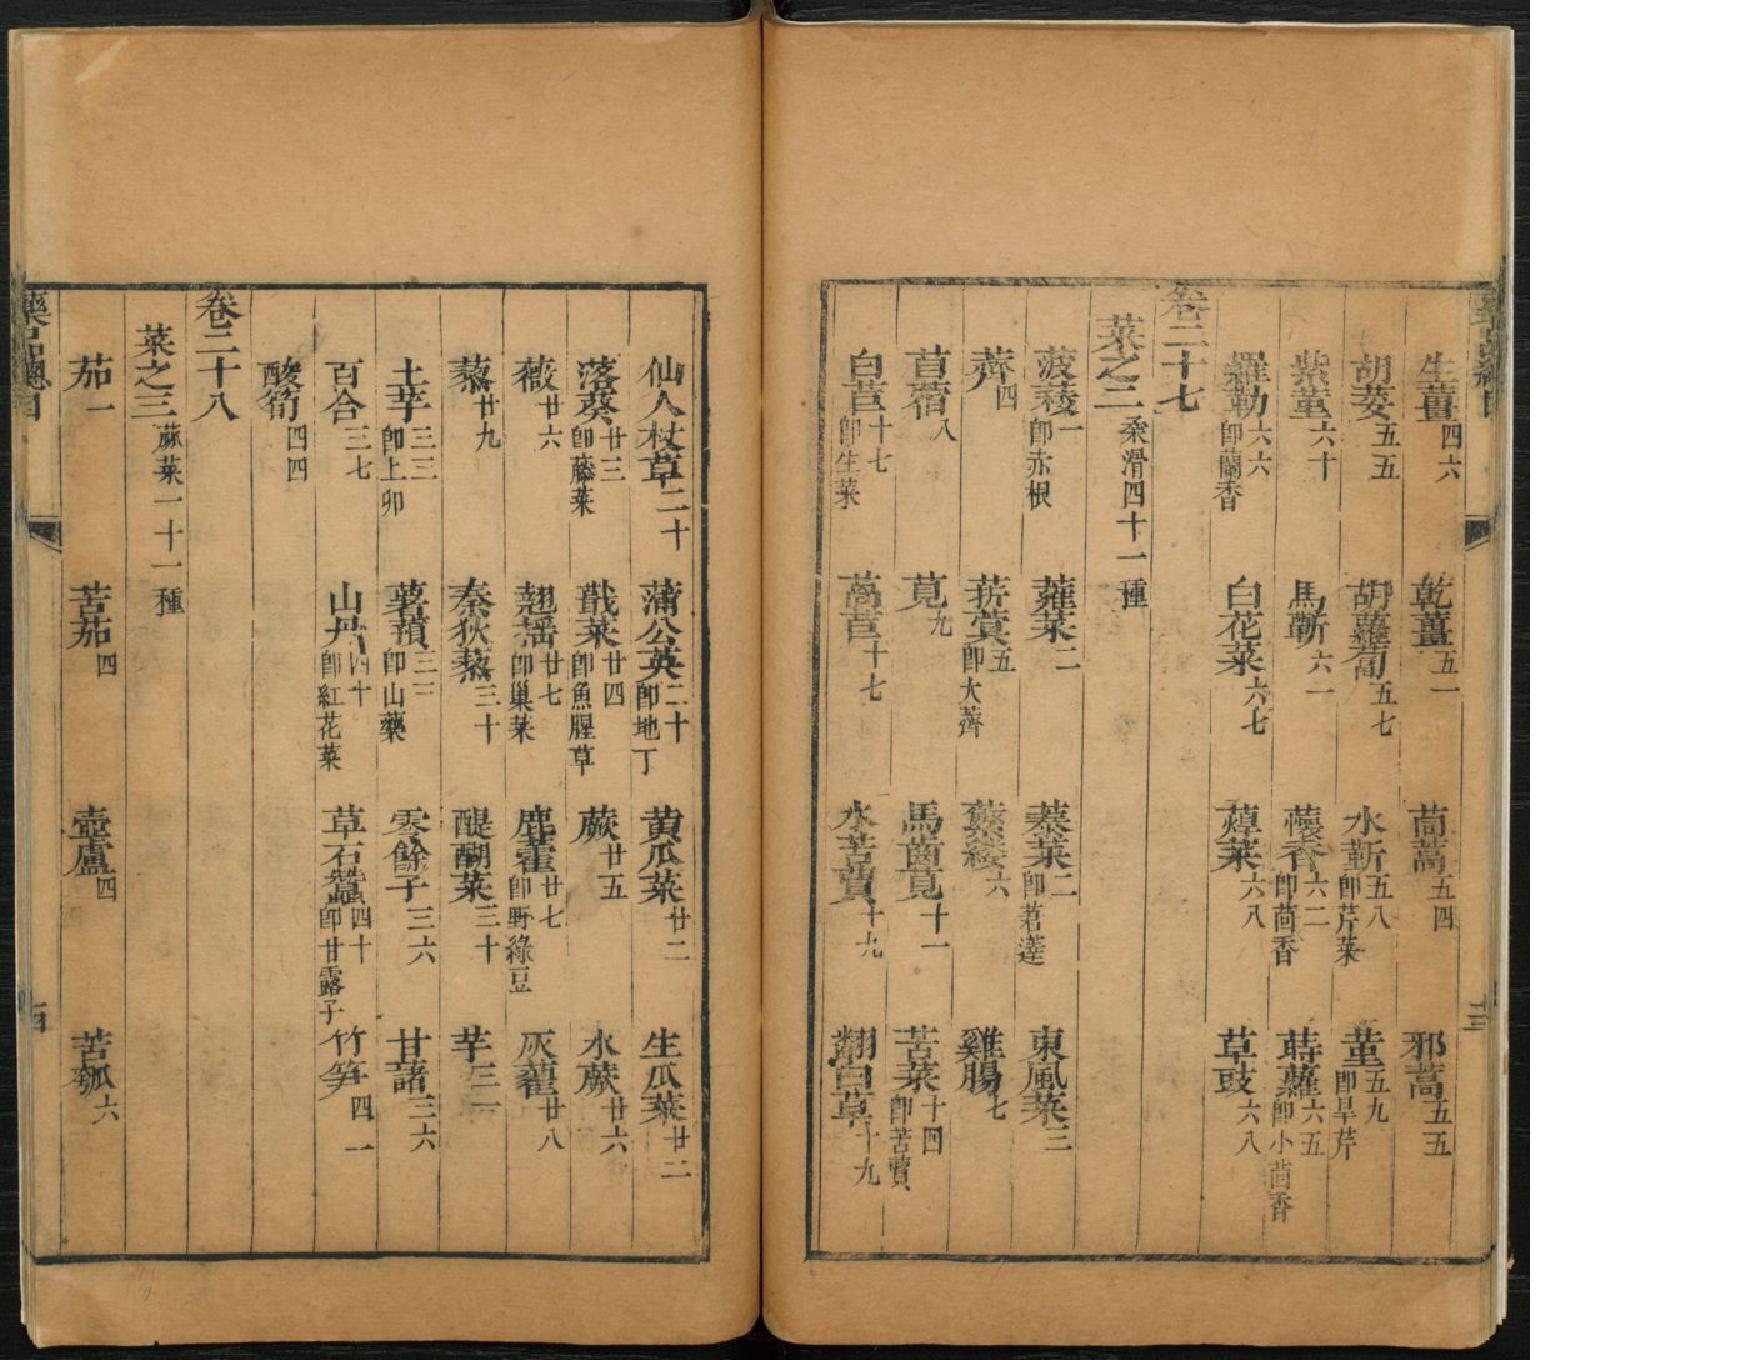 生薑四六 乾薑五一 茼蒿五四 邪蒿五五
胡荽五五 胡蘿蔔五七 水蘄五八即芹菜 菫五九即旱芹
紫菫六十 馬蘄六一 蘹香六二即茴香 蒔蘿六五即小茴香
羅勒六六即蘭香 白花菜六七 蔊菜六八 草豉六八
卷二十七
菜之二柔滑四十一種
菠薐一即赤根 蕹菜二 菾菜二即莙薘 東風菜三
薺四 菥蓂五即大薺 蘩縷六 雞腸七
苜蓿八 莧九 馬齒莧十一 苦菜十四即苦蕒
白苣十七即生菜 萵苣十七 水苦蕒十九 翻白草十九
仙人杖草二十 蒲公英二十即地丁 黃瓜菜廿二 生瓜菜廿二
落葵廿三即藤菜 蕺菜廿四即魚腥草 蕨廿五 水蕨廿六
薇廿六 翹搖廿七即巢菜 鹿藿廿七即野綠豆 灰藋廿八
藜廿九 秦狄藜三十 醍醐菜三十 芋三一
土芋三三即土卵 薯蕷三三即山藥 零餘子三六 甘藷三六
百合三七 山丹四十即紅花菜 草石蠶四十即甘露子 竹笋四一
酸筍四四
卷二十八
菜之三蓏菜一十一種
茄一 苦茄四 壺盧四 苦瓠六